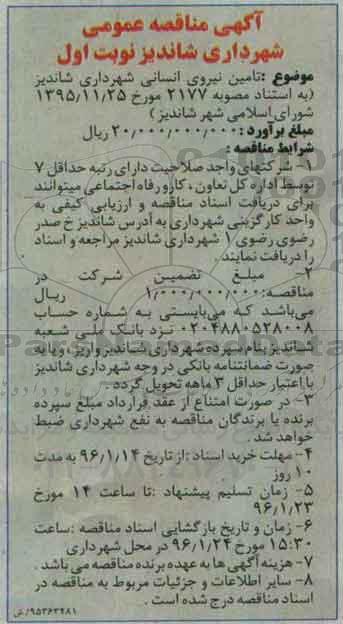 آگهی مناقصه عمومی
شهرداری شاندیز نوبت اول
موضوع :تامین نیروی انسانی شهرداری شاندیز
(به استناد مصوبه ۲۱۷۷ مورخ ۱۳۹۵/۱۱/۲۵
شورای‌اسلامی شهر شاندیز )
مبلغ برآورد :۲۰,۰۰۰,۰۰۰,۰۰۰ ریال
شرایط مناقصه :
۱- شرکتهای واجد صلاحیت دارای رتبه حداقل ۷
توسط اداره کل تعاون ، کارو رفاه اجتماعی میتوانند
برای دریافت اسناد مناقصه و ارزیابی کیفی به
واحد کارگزینی شهرداری به آدرس شاندیز خ صدر
رضوی رضوی ۱ شهرداری شاندیز مراجعه و اسناد
را دریافت نمایند .
۲- مبلغ تضمین شرکت در
مناقصه:۱,۰۰۰,۰۰۰,۰۰۰ ریال
می‌باشد که می‌بایستی به شماره حساب
۰۲۰۴۸۸۰۵۲۸۰۰۸ نزد بانک ملی شعبه
شاندیز بنام سپرده شهرداری شاندیز واریز ، و یا به
صورت ضمانتنامه بانکی در وجه شهرداری شاندیز
با اعتبار حداقل ۳ ماهه تحویل گردد .
۳- در صورت امتناع از عقد قرارداد مبلغ سپرده
برنده یا برندگان مناقصه به نفع شهرداری ضبط
خواهد شد .
۴- مهلت خرید اسناد :از تاریخ ۹۶/۱/۱۴ به مدت
۱۰ روز
۵- زمان تسلیم پیشنهاد :تا ساعت ۱۴ مورخ
۹۶/۱/۲۳
۶- زمان و تاریخ بازگشایی اسناد مناقصه :ساعت
۱۵:۳۰ مورخ ۹۶/۱/۲۴ در محل شهرداری
۷- هزینه آگهی ها به عهده برنده مناقصه می باشد .
۸- سایر اطلاعات و جزئیات مربوط به مناقصه در
اسناد مناقصه درج شده است .
۹۵۳۶۳۹۸۱/ش